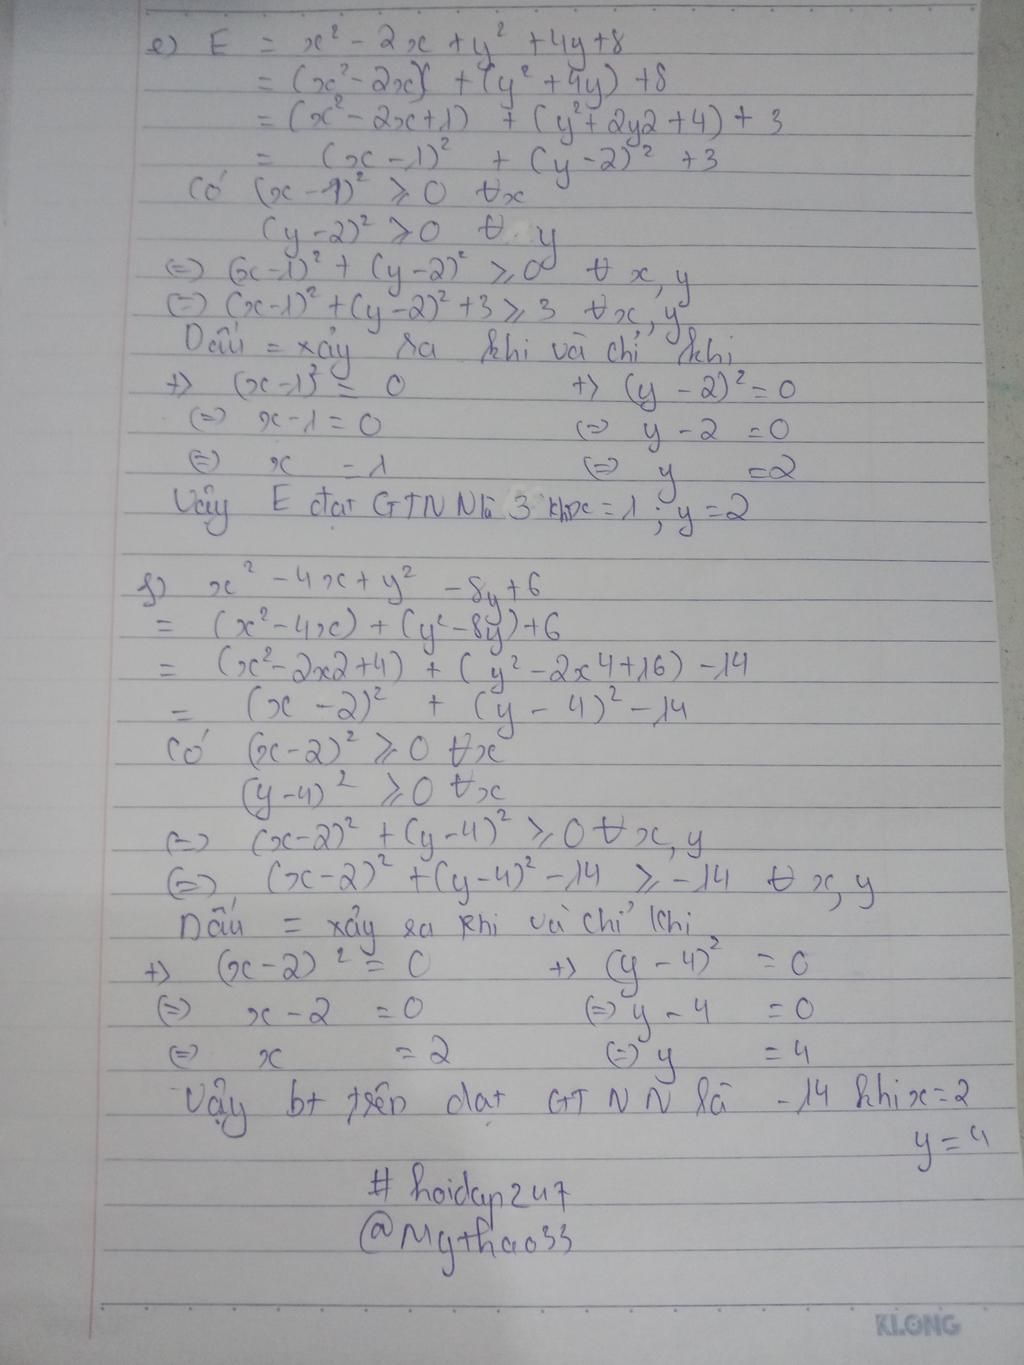 e) E = x² - 2x + y² + 4y + 8
= (x² - 2x) + (y² + 4y) + 8
= (x² - 2x + 1) + (y² + 2y2 + 4) + 3
= (x - 1)² + (y - 2)² + 3
Có (x - 1)² ≥ 0 ∀x
(y - 2)² ≥ 0 ∀ y
(=) (x - 1)² + (y - 2)² ≥ 0 ∀ x, y
(=) (x - 1)² + (y - 2)² + 3 ≥ 3 ∀x, y
Dấu = xảy ra khi và chỉ khi
+) (x - 1)² = 0 +) (y - 2)² = 0
(=) x - 1 = 0 (=) y - 2 = 0
(=) x = 1 (=) y = 2
Vậy E đạt GTNN là 3 khi x = 1 ; y = 2
f) x² - 4x + y² - 8y + 6
= (x² - 4x) + (y² - 8y) + 6
= (x² - 2x2 + 4) + (y² - 2x4 + 16) - 14
= (x - 2)² + (y - 4)² - 14
Có (x - 2)² ≥ 0 ∀x
(y - 4)² ≥ 0 ∀x
(=) (x - 2)² + (y - 4)² ≥ 0 ∀ x, y
(=) (x - 2)² + (y - 4)² - 14 ≥ -14 ∀ x, y
Dấu = xảy ra khi và chỉ khi
+) (x - 2)² = 0 +) (y - 4)² = 0
(=) x - 2 = 0 (=) y - 4 = 0
(=) x = 2 (=) y = 4
Vậy bt trên đạt GTNN là -14 khi x = 2
y = 4
# hoidap247
@Mythao33
KLONG